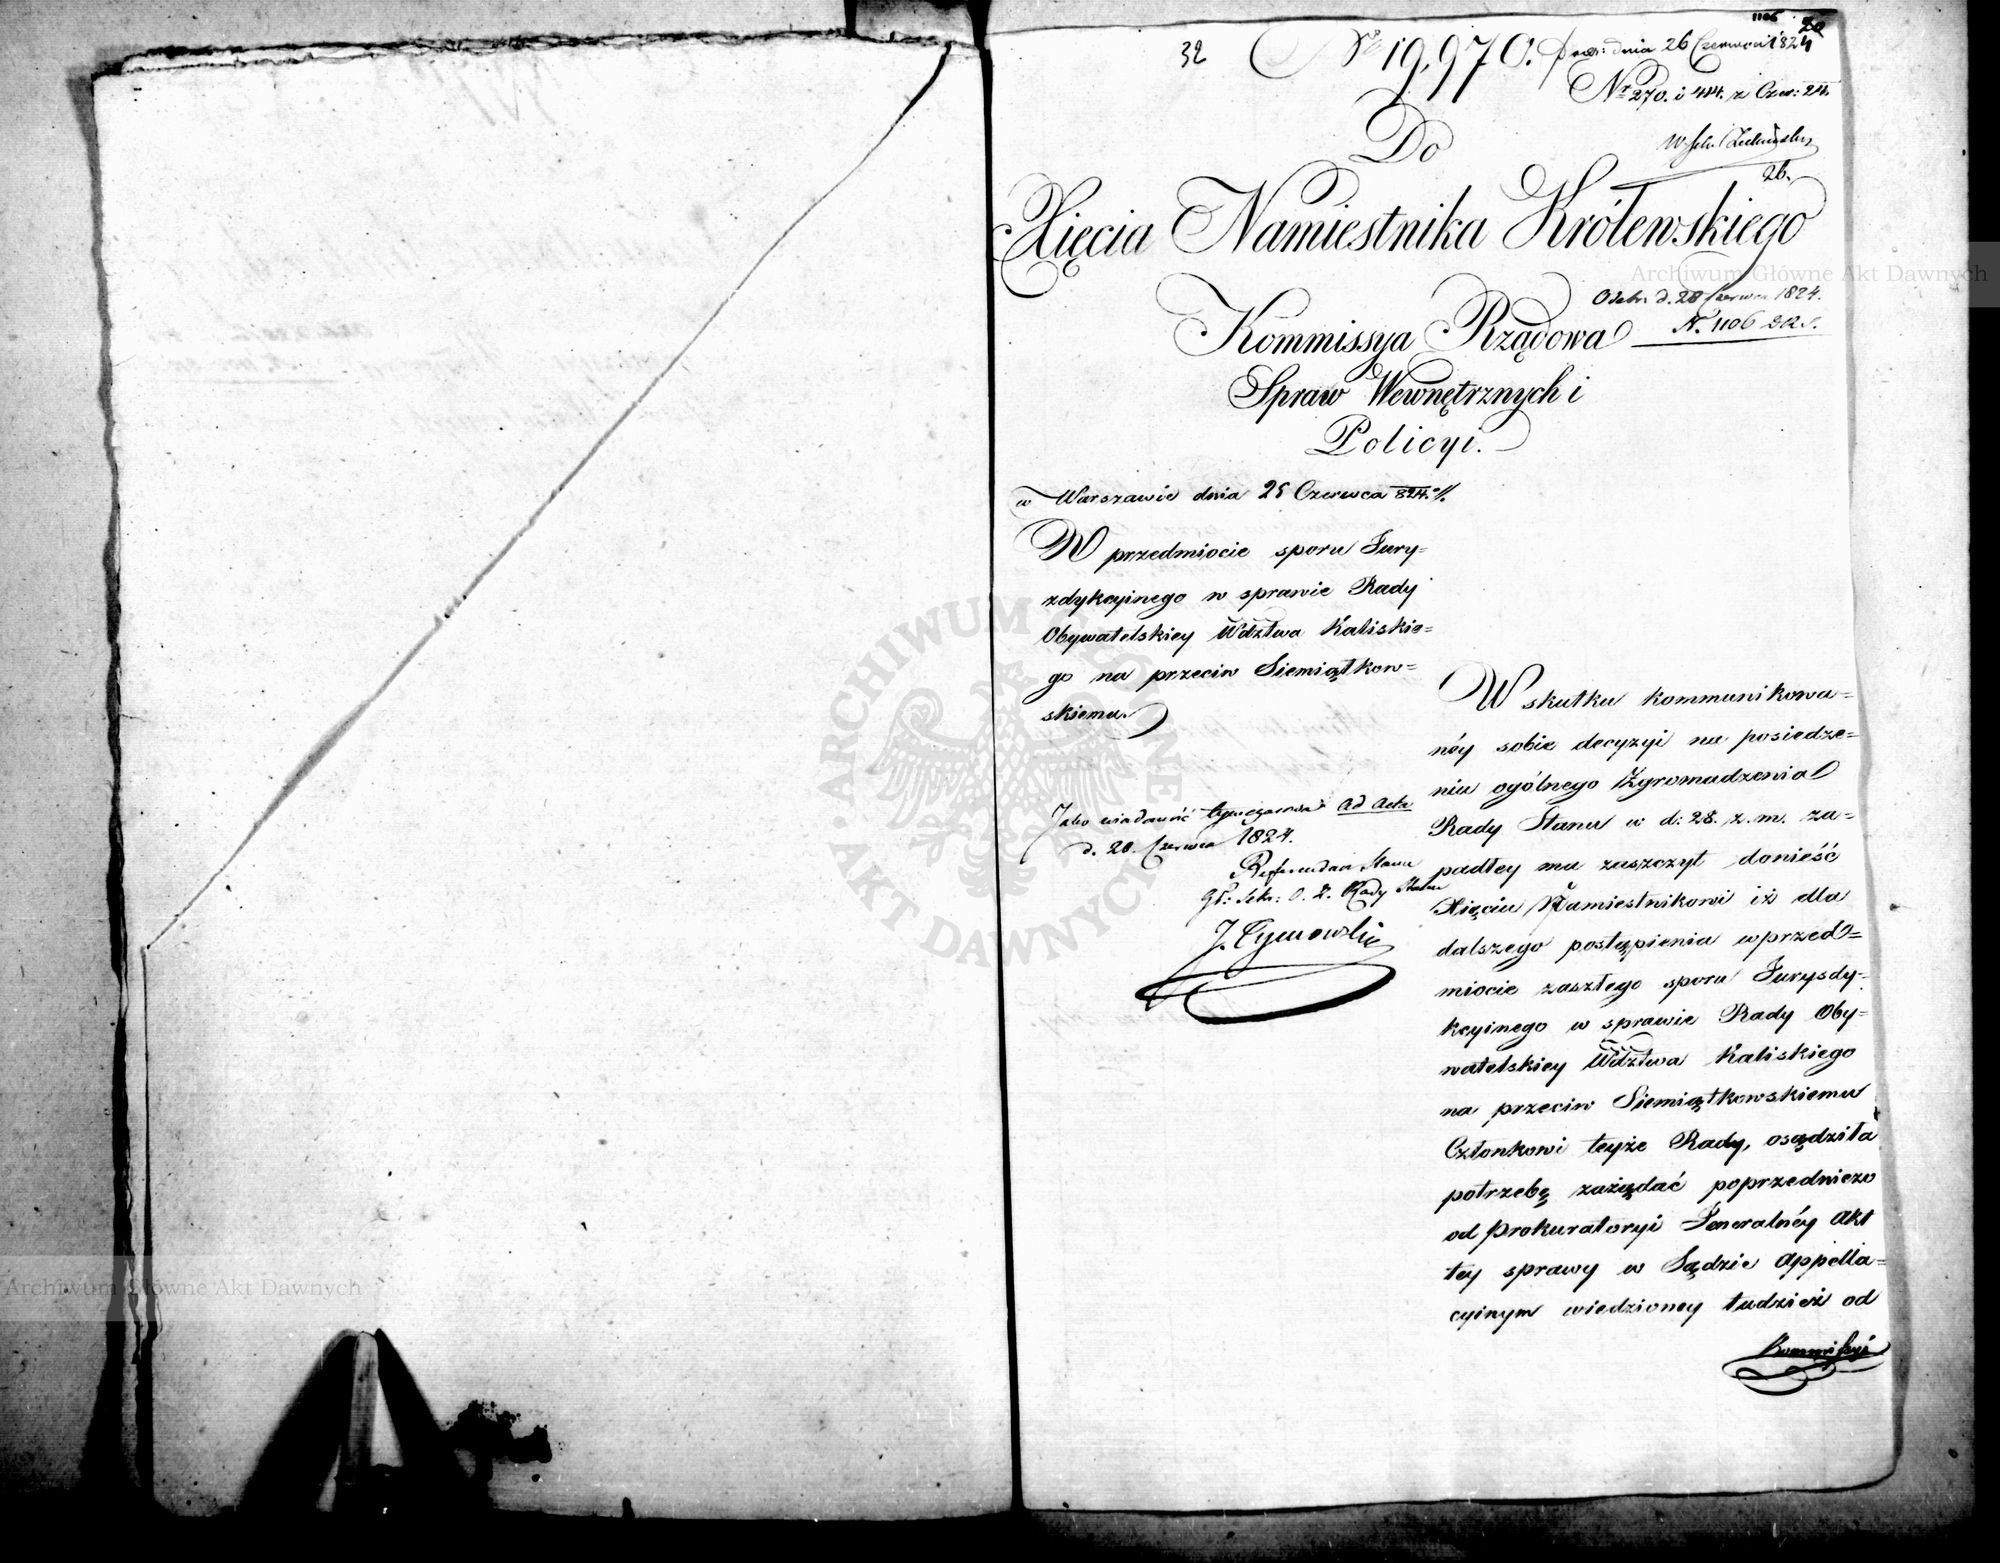 1106
32 Nº 19,970. prez: dnia 26 Czerwca 1824
Nr 270. i 414. z Czer: 24.
Do
26.
Xięcia Namiestnika Królewskiego
Odebr: d. 28 Czerwca 1824.
N. 1106
Kommissya Rządowa
Spraw Wewnętrznych i
Policyi.
w Warszawie dnia 25 Czerwca 824. r.
W przedmiocie sporu Jury=
zdykcyinego w sprawie Rady
Obywatelskiey Wdztwa Kaliskie=
go na przeciw Siemiątkow=
skiemu.
Jako wiadomość tymczasowa ad acta
d. 28. Czerwca 1824.
Referendarz Stanu
Gł: Sekr: O. Z. Rady Stanu
J. Tymowski
W skutku kommunikowa=
néy sobie decyzyi na posiedze=
niu ogólnego Zgromadzenia
Rady Stanu w d: 28. z. m. za=
padłey ma zaszczyt donieść
Xięciu Namiestnikowi iż dla
dalszego postąpienia w przed=
miocie zaszłego sporu Jurysdy=
kcyinego w sprawie Rady Oby=
watelskiey Wdztwa Kaliskiego
na przeciw Siemiątkowskiemu
Członkowi teyże Rady, osądziła
potrzebę zażądać poprzedniczo
od Prokuratoryi Jeneralnéy Akt
tey sprawy w Sądzie Appella=
cyinym wiedzioney tudzież od
Kommissyi
Archiwum Główne Akt Dawnych
Archiwum Główne Akt Dawnych
ARCHIWUM GŁÓWNE AKT DAWNYCH